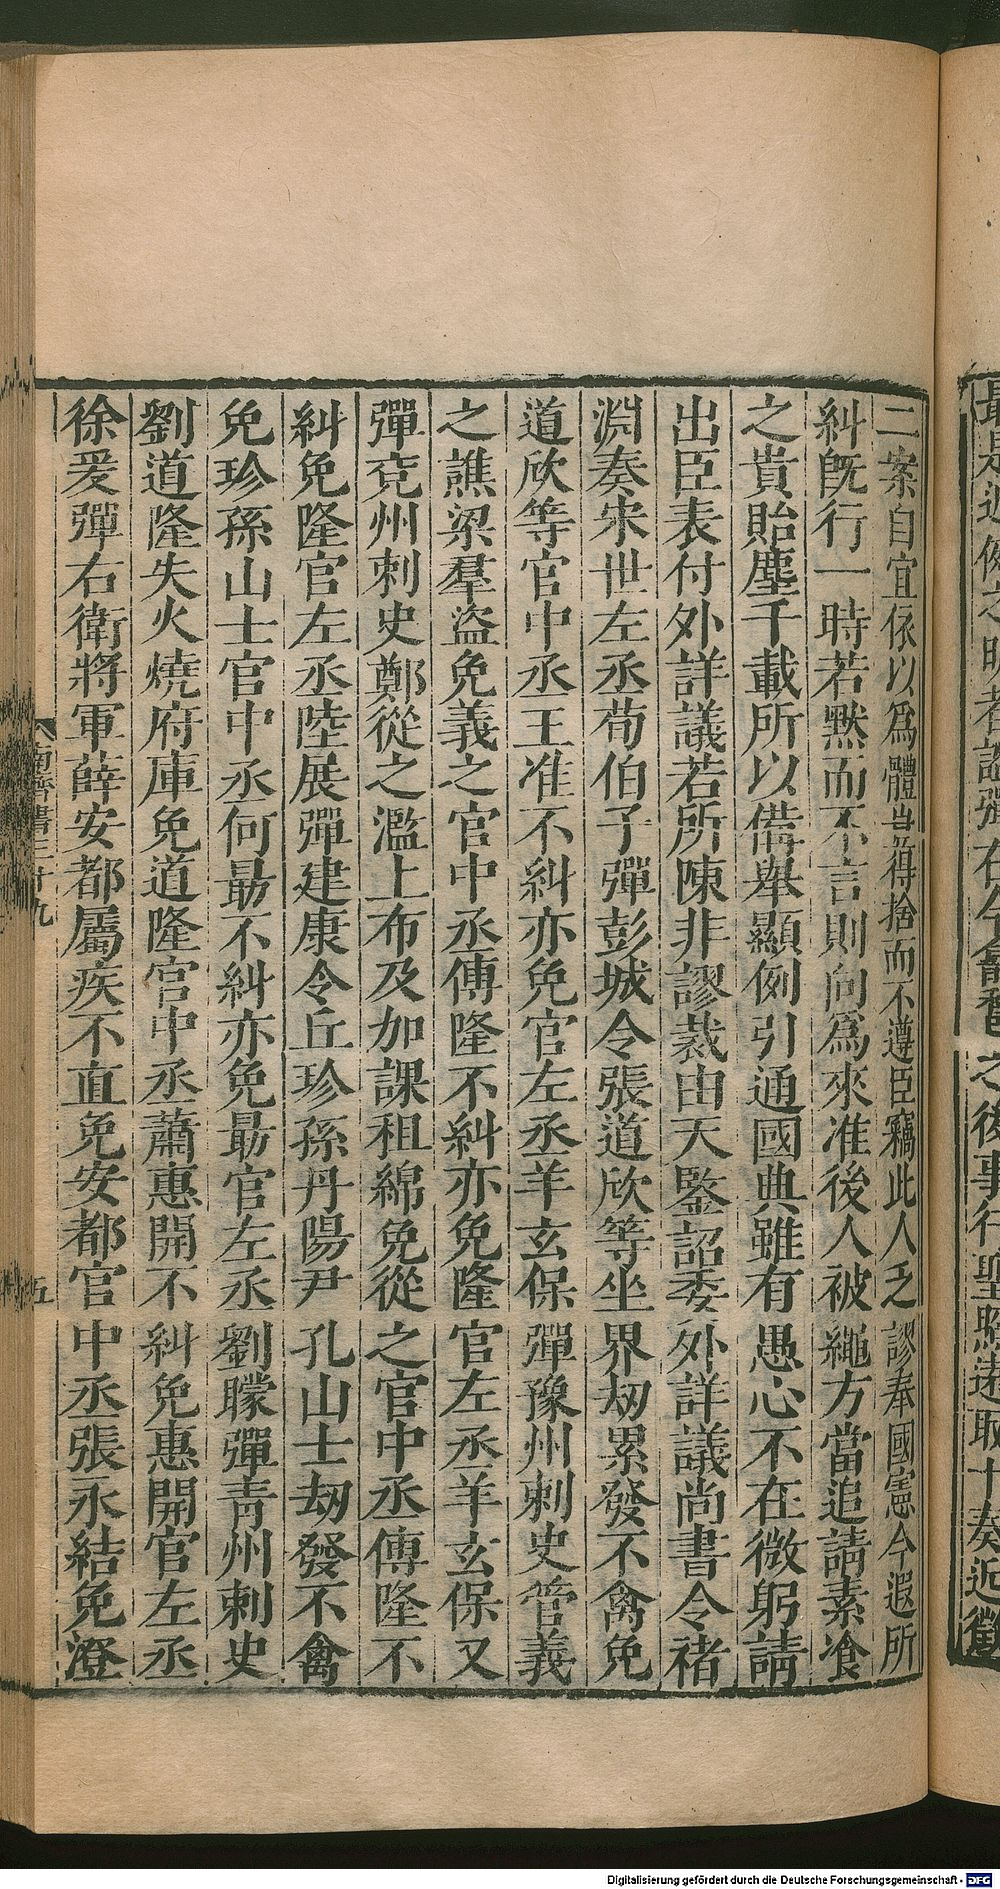 最是近例之明者謹彈在今龠舊之後事行聖照遠取十奏近徵
二案自宜依以爲體豈得捨而不遵臣竊此人乏謬奉國憲今遐所
糾旣行一時若黙而不言則向爲來准後人被繩方當追請素飡
之貴貽塵千載所以備舉顯例引通國典雖有愚心不在微躬請
出臣表付外詳議若所陳非謬裁由天鑒詔委外詳議尚書令褚
淵奏宋世左丞荀伯子彈彭城令張道欣等坐界刼累發不禽免
道欣等官中丞王准不糾亦免官左丞羊玄保彈豫州刺史管義
之譙梁羣盜免義之官中丞傅隆不糾亦免隆官左丞羊玄保又
彈兗州刺史鄭從之濫上布及加課租綿免從之官中丞傅隆不
糾免隆官左丞陸展彈建康令丘珍孫丹陽尹孔山士刼發不禽
免珍孫山士官中丞何勗不糾亦免勗官左丞劉矇彈青州刺史
劉道隆失火燒府庫免道隆官中丞蕭惠開不糾免惠開官左丞
徐爰彈右衛將軍薛安都屬疾不直免安都官中丞張永結免澄
南齊書三十九
五
Digitalisierung gefördert durch die Deutsche Forschungsgemeinschaft - DFG